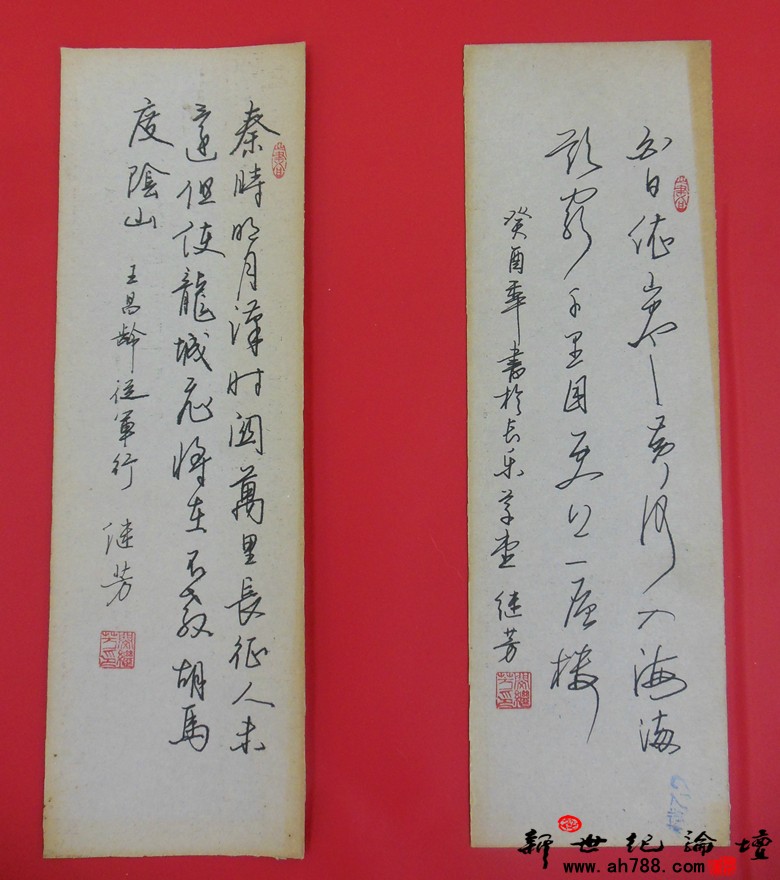 白日依山尽黄河入海流
欲窮千里目更上一层楼
癸酉年書於长乐草堂 继芳
秦時明月漢时關萬里長征人未
還但使龍城飛將在不教胡馬
度陰山 王昌齡從軍行 继芳
新世纪論壇
www.ah788.com